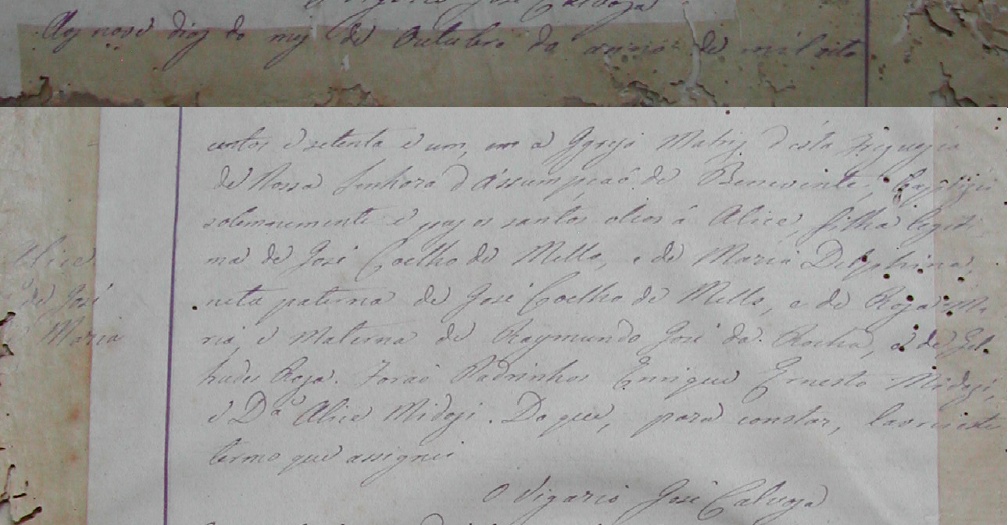 O Vigario José Calvosa
Aos nove dias do mez de Outubro do anno de mil oito
centos e setenta e um, em a Igreja Matriz d'esta Freguezia
de Nossa Senhora d'Assumpção de Benevente, baptizei
solemnemente e puz os santos oleos á Alice, filha legiti
ma de José Coelho de Mello, e de Maria Delphina,
Alice
neta paterna de José Coelho de Mello, e de Roza Ma
de José
ria, e Materna de Raymundo José da Rocha, e de Gel
Maria
hudes Roza. Forão Padrinhos Enrique Ernesto Midosi,
e Dª Alice Midosi. Do que, para constar, lavrei este
termo que assignei
O Vigario José Calvosa